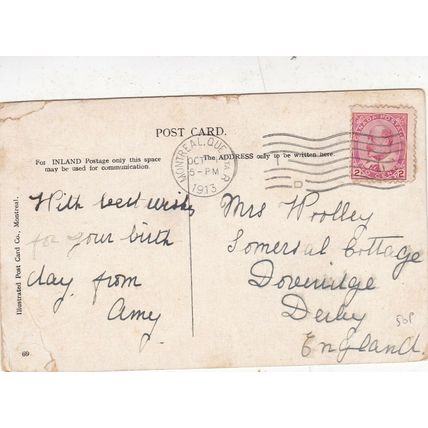 POST CARD.
For INLAND Postage only this space
may be used for communication.
The ADDRESS only to be written here.
MONTREAL, QUE.
OCT
5-PM
1913
CANADA POSTAGE
2 CENTS 2
With best wishes
for your birth
day, from
Amy
Mrs Woolley
Somersal Cottage
Doveridge
Derby
England
50P
Illustrated Post Card Co., Montreal.
69